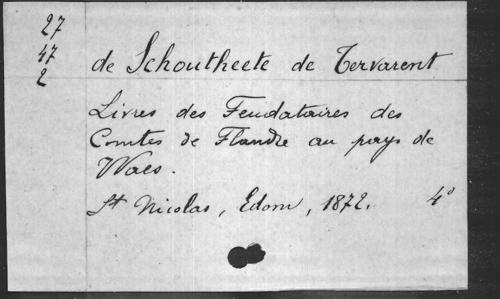 27
47
2
de Schoutheete de Tervarent
Livres des Feudataires des
Comtes de Flandre au pays de
Waes.
St Nicolas, Edom, 1872. 4°